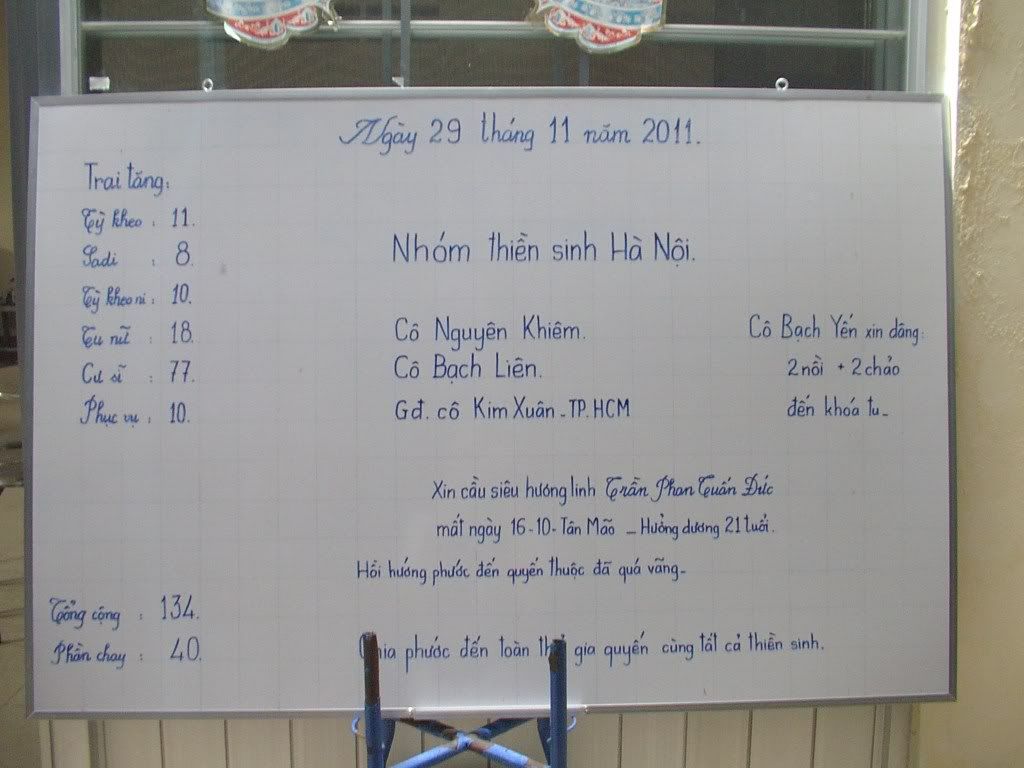 Ngày 29 tháng 11 năm 2011.
Trai tăng:
Tỳ kheo : 11.
Sadi : 8.
Tỳ kheo ni : 10.
Tu nữ : 18.
Cư sĩ : 77.
Phục vụ : 10.
Nhóm thiền sinh Hà Nội.
Cô Nguyên Khiêm.
Cô Bạch Liên.
Gđ. cô Kim Xuân - TP. HCM
Cô Bạch Yến xin dâng:
2 nồi + 2 chảo
đến khóa tu -
Xin cầu siêu hương linh Trần Phan Tuấn Đức
mất ngày 16-10- Tân Mão - Hưởng dương 21 tuổi.
Hồi hướng phước đến quyến thuộc đã quá vãng -
Tổng cộng : 134.
Phần chay : 40.
Chia phước đến toàn thể gia quyến cùng tất cả thiền sinh.